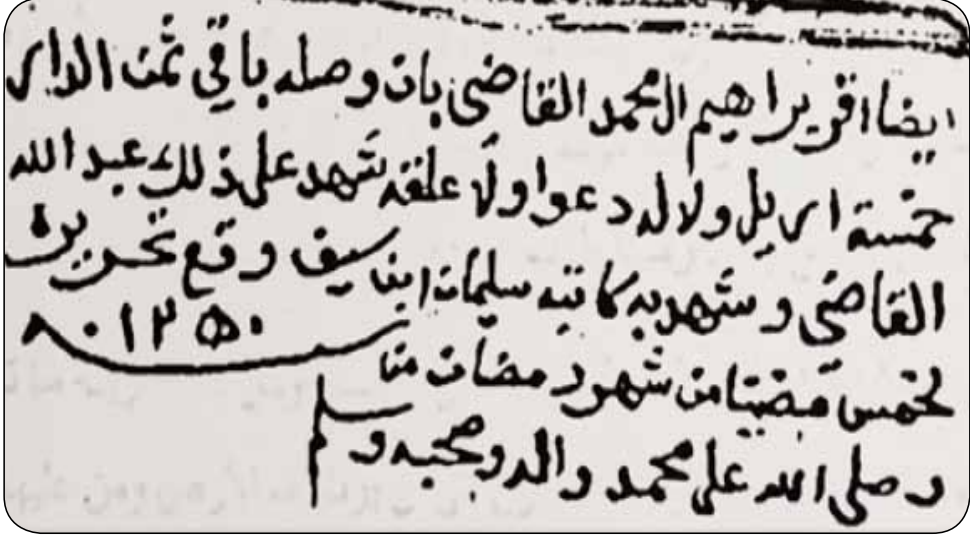 ايضا اقر براهيم المحمد القاضي بان وصله باقي ثمن الدار
خمسة اريل ولا له دعوا ولا علقه شهد على ذلك عبد الله
القاضي وشهد به كاتبه سليمان ابن سيف وقع تحريره
لخمس مضيتا من شهر رمضان سنة ١٣٥٠
وصلى الله على محمد واله وصحبه وسلم